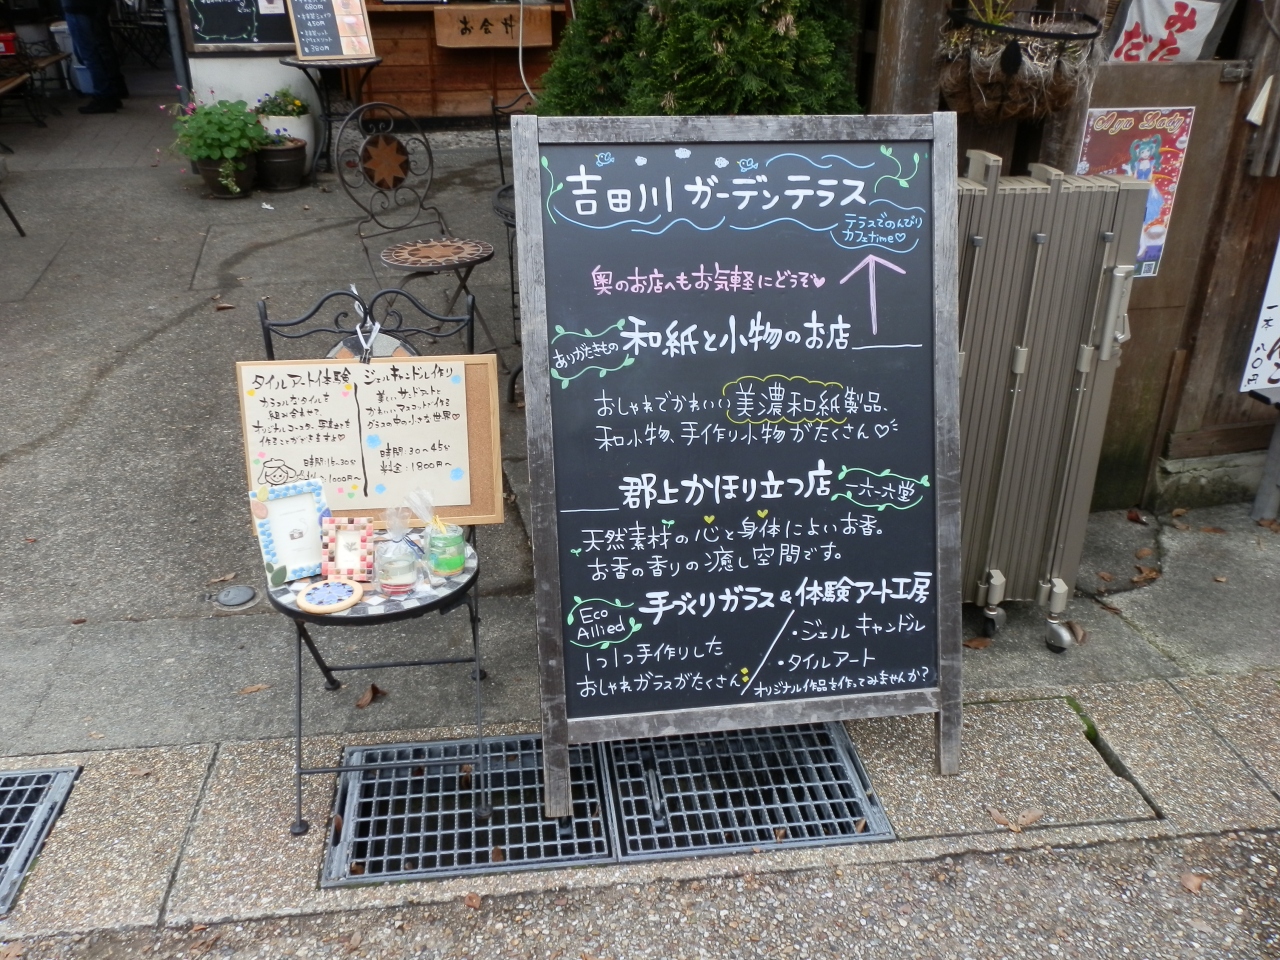 680円
450円
380円
お会計
みたらし
だ
Ayu Lady
吉田川 ガーデンテラス
テラスでのんびり
カフェtime♡
奥のお店へもお気軽にどうぞ♥
ありがたきもの
和紙と小物のお店
おしゃれでかわいい美濃和紙製品、
和小物、手作り小物がたくさん♡
郡上かほり立つ店
一六一六堂
天然素材の心と身体によいお香。
お香の香りの癒し空間です。
Eco
Allied
手づくりガラス&体験アート工房
1つ1つ手作りした
おしゃれガラスがたくさん
・ジェルキャンドル
・タイルアート
オリジナル作品を作ってみませんか?
タイルアート体験
カラフルなタイルを
組み合わせて
オリジナルコースター、写真立てを
作ることができますよ♡
時間:15〜30分
1000円〜
ジェルキャンドル作り
美しいサンドアストと
かわいいマスコットで作る
グラスの中の小さな世界♡
時間:30〜45分
料金:1800円〜
一本
八〇円